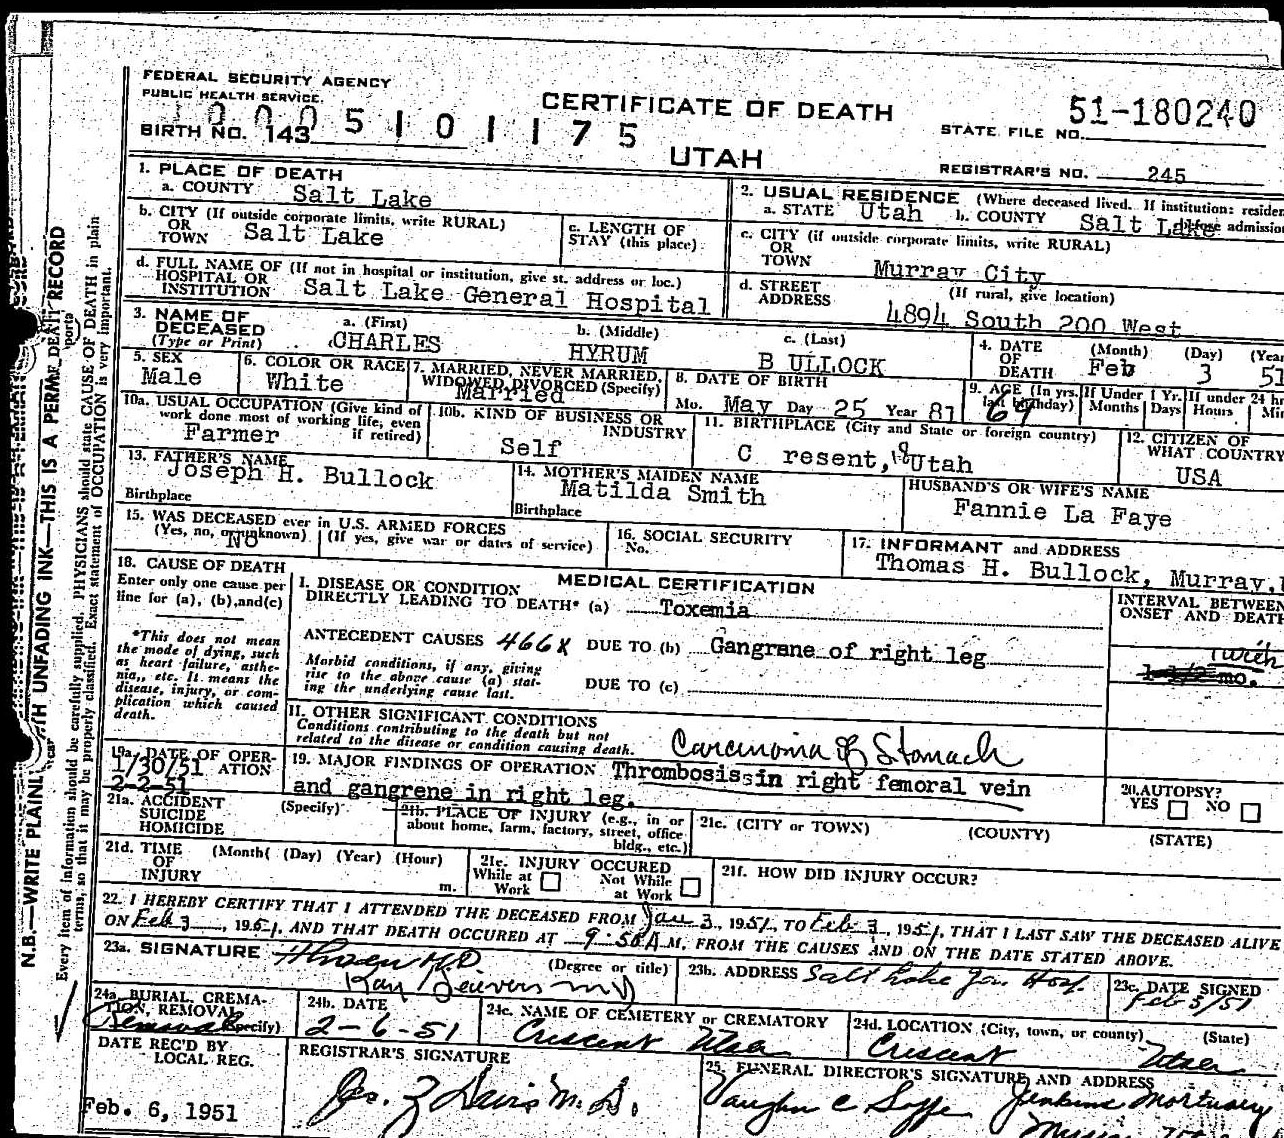 FEDERAL SECURITY AGENCY
PUBLIC HEALTH SERVICE.
CERTIFICATE OF DEATH
UTAH
51-180240
STATE FILE NO.
BIRTH NO. 143 5101175
REGISTRAR'S NO. 245
1. PLACE OF DEATH
a. COUNTY Salt Lake
b. CITY (If outside corporate limits, write RURAL)
OR
TOWN Salt Lake
c. LENGTH OF
STAY (this place)
d. FULL NAME OF (If not in hospital or institution, give st. address or loc.)
HOSPITAL OR
INSTITUTION Salt Lake General Hospital
2. USUAL RESIDENCE (Where deceased lived. If institution: residen
a. STATE Utah b. COUNTY Salt Lake before admission
c. CITY (if outside corporate limits, write RURAL)
OR
TOWN Murray City
d. STREET (If rural, give location)
ADDRESS 4894 South 200 West
3. NAME OF
DECEASED
(Type or Print)
a. (First) CHARLES
b. (Middle) HYRUM
c. (Last) B ULLOCK
4. DATE OF DEATH (Month) (Day) (Year
Feb 3 51
5. SEX
Male
6. COLOR OR RACE
White
7. MARRIED, NEVER MARRIED,
WIDOWED, DIVORCED (Specify)
Married
8. DATE OF BIRTH
Mo. May Day 25 Year 81
9. AGE (In yrs. last birthday) 69
If Under 1 Yr. Months Days
If under 24 hr Hours Mi
10a. USUAL OCCUPATION (Give kind of
work done most of working life, even
if retired)
Farmer
10b. KIND OF BUSINESS OR
INDUSTRY
Self
11. BIRTHPLACE (City and State or foreign country)
C resent, Utah
12. CITIZEN OF
WHAT COUNTRY
USA
13. FATHER'S NAME
Joseph H. Bullock
Birthplace
14. MOTHER'S MAIDEN NAME
Matilda Smith
Birthplace
HUSBAND'S OR WIFE'S NAME
Fannie La Faye
15. WAS DECEASED ever in U.S. ARMED FORCES
(Yes, no, or unknown) (If yes, give war or dates of service)
No
16. SOCIAL SECURITY
No.
17. INFORMANT and ADDRESS
Thomas H. Bullock, Murray,
18. CAUSE OF DEATH
Enter only one cause per
line for (a), (b), and (c)
*This does not mean
the mode of dying, such
as heart failure, asthe-
nia,, etc. It means the
disease, injury, or com-
plication which caused
death.
MEDICAL CERTIFICATION
I. DISEASE OR CONDITION
DIRECTLY LEADING TO DEATH* (a) Toxemia
ANTECEDENT CAUSES 466X DUE TO (b) Gangrene of right leg
Morbid conditions, if any, giving
rise to the above cause (a) stat-
ing the underlying cause last.
DUE TO (c)
INTERVAL BETWEEN
ONSET AND DEATH
1 1/2 mo.
II. OTHER SIGNIFICANT CONDITIONS
Conditions contributing to the death but not
related to the disease or condition causing death.
Carcinoma of Stomach
19a. DATE OF OPER-
ATION
1/30/51
2-2-51
19. MAJOR FINDINGS OF OPERATION Thrombosis in right femoral vein
and gangrene in right leg.
20. AUTOPSY?
YES NO
21a. ACCIDENT (Specify)
SUICIDE
HOMICIDE
21b. PLACE OF INJURY (e.g., in or
about home, farm, factory, street, office
bldg., etc.)
21c. (CITY or TOWN) (COUNTY) (STATE)
21d. TIME (Month( (Day) (Year) (Hour)
OF
INJURY m.
21e. INJURY OCCURED
While at Work Not While at Work
21f. HOW DID INJURY OCCUR?
22. I HEREBY CERTIFY THAT I ATTENDED THE DECEASED FROM Jan 3, 1951, TO Feb 3, 1951, THAT I LAST SAW THE DECEASED ALIVE
ON Feb 3, 1951, AND THAT DEATH OCCURED AT 9:50 A.M, FROM THE CAUSES AND ON THE DATE STATED ABOVE.
23a. SIGNATURE (Degree or title)
M.D.
23b. ADDRESS Salt Lake Gen. Hosp.
23c. DATE SIGNED
Feb 3/51
24a. BURIAL, CREMA-
TION, REMOVAL
(Specify)
Removal
24b. DATE
2-6-51
24c. NAME OF CEMETERY or CREMATORY
Crescent Utah
24d. LOCATION (City, town, or county) (State)
Crescent Utah
DATE REC'D BY
LOCAL REG.
Feb. 6, 1951
REGISTRAR'S SIGNATURE
Jos. Z Davis M.D.
25. FUNERAL DIRECTOR'S SIGNATURE AND ADDRESS
Vaughn C Jenkins Mortuary
N.B.—WRITE PLAINLY UNFADING INK—THIS IS A RECORD
Every item of information should be carefully supplied. PHYSICIANS should state CAUSE OF DEATH in plain
terms, so that it may be properly classified. Exact statement of OCCUPATION is very important.